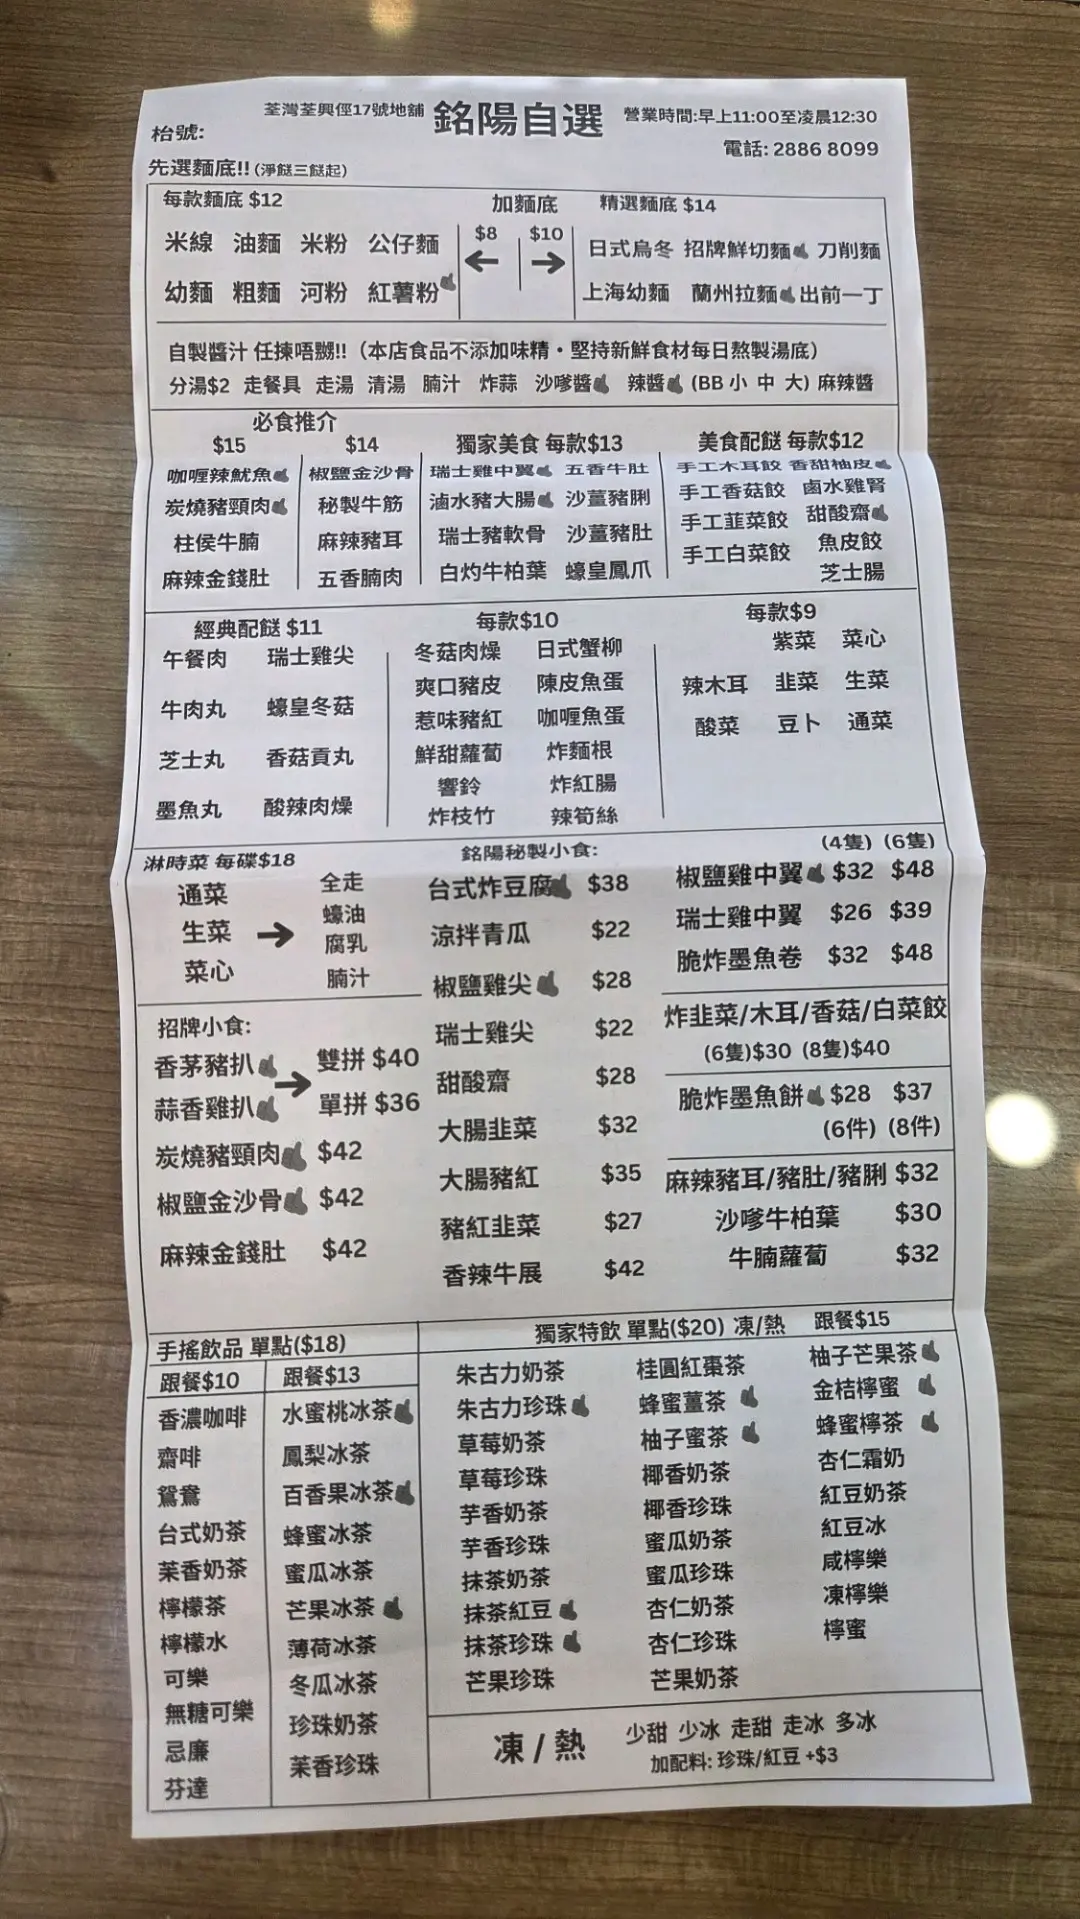 荃灣荃興徑17號地舖 銘陽自選 營業時間:早上11:00至凌晨12:30
枱號:
電話: 2886 8099
先選麵底!! (淨餸三餸起)
每款麵底 $12 加麵底 精選麵底 $14
$8 $10
米線 油麵 米粉 公仔麵 ← → 日式烏冬 招牌鮮切麵 刀削麵
幼麵 粗麵 河粉 紅薯粉 上海幼麵 蘭州拉麵 出前一丁
自製醬汁 任揀唔嬲!! (本店食品不添加味精・堅持新鮮食材每日熬製湯底)
分湯$2 走餐具 走湯 清湯 腩汁 炸蒜 沙嗲醬 辣醬 (BB 小 中 大) 麻辣醬
必食推介
$15 $14 獨家美食 每款$13 美食配餸 每款$12
咖喱辣魷魚 椒鹽金沙骨 瑞士雞中翼 五香牛肚 手工木耳餃 香甜柚皮
炭燒豬頸肉 秘製牛筋 滷水豬大腸 沙薑豬脷 手工香菇餃 鹵水雞腎
柱侯牛腩 麻辣豬耳 瑞士豬軟骨 沙薑豬肚 手工韮菜餃 甜酸齋
麻辣金錢肚 五香腩肉 白灼牛柏葉 蠔皇鳳爪 手工白菜餃 魚皮餃
芝士腸
經典配餸 $11 每款$10 每款$9
午餐肉 瑞士雞尖
牛肉丸 蠔皇冬菇
芝士丸 香菇貢丸
墨魚丸 酸辣肉燥
冬菇肉燥 日式蟹柳
爽口豬皮 陳皮魚蛋
惹味豬紅 咖喱魚蛋
鮮甜蘿蔔 炸麵根
響鈴 炸紅腸
炸枝竹 辣筍絲
紫菜 菜心
辣木耳 韭菜 生菜
酸菜 豆卜 通菜
淋時菜 每碟$18
通菜
生菜 →
菜心
全走
蠔油
腐乳
腩汁
招牌小食:
香茅豬扒 雙拼 $40
→
蒜香雞扒 單拼 $36
炭燒豬頸肉 $42
椒鹽金沙骨 $42
麻辣金錢肚 $42
銘陽秘製小食:
台式炸豆腐 $38
涼拌青瓜 $22
椒鹽雞尖 $28
瑞士雞尖 $22
甜酸齋 $28
大腸韭菜 $32
大腸豬紅 $35
豬紅韭菜 $27
香辣牛展 $42
(4隻) (6隻)
椒鹽雞中翼 $32 $48
瑞士雞中翼 $26 $39
脆炸墨魚卷 $32 $48
炸韭菜/木耳/香菇/白菜餃
(6隻)$30 (8隻)$40
脆炸墨魚餅 $28 $37
(6件) (8件)
麻辣豬耳/豬肚/豬脷 $32
沙嗲牛柏葉 $30
牛腩蘿蔔 $32
手搖飲品 單點($18)
跟餐$10 跟餐$13
香濃咖啡 水蜜桃冰茶
齋啡 鳳梨冰茶
鴛鴦 百香果冰茶
台式奶茶 蜂蜜冰茶
茉香奶茶 蜜瓜冰茶
檸檬茶 芒果冰茶
檸檬水 薄荷冰茶
可樂 冬瓜冰茶
無糖可樂 珍珠奶茶
忌廉 茉香珍珠
芬達
獨家特飲 單點($20) 凍/熱 跟餐$15
朱古力奶茶 桂圓紅棗茶 柚子芒果茶
朱古力珍珠 蜂蜜薑茶 金桔檸蜜
草莓奶茶 柚子蜜茶 蜂蜜檸茶
草莓珍珠 椰香奶茶 杏仁霜奶
芋香奶茶 椰香珍珠 紅豆奶茶
芋香珍珠 蜜瓜奶茶 紅豆冰
抹茶奶茶 蜜瓜珍珠 咸檸樂
抹茶紅豆 杏仁奶茶 凍檸樂
抹茶珍珠 杏仁珍珠 檸蜜
芒果珍珠 芒果奶茶
凍 / 熱 少甜 少冰 走甜 走冰 多冰
加配料: 珍珠/紅豆 +$3